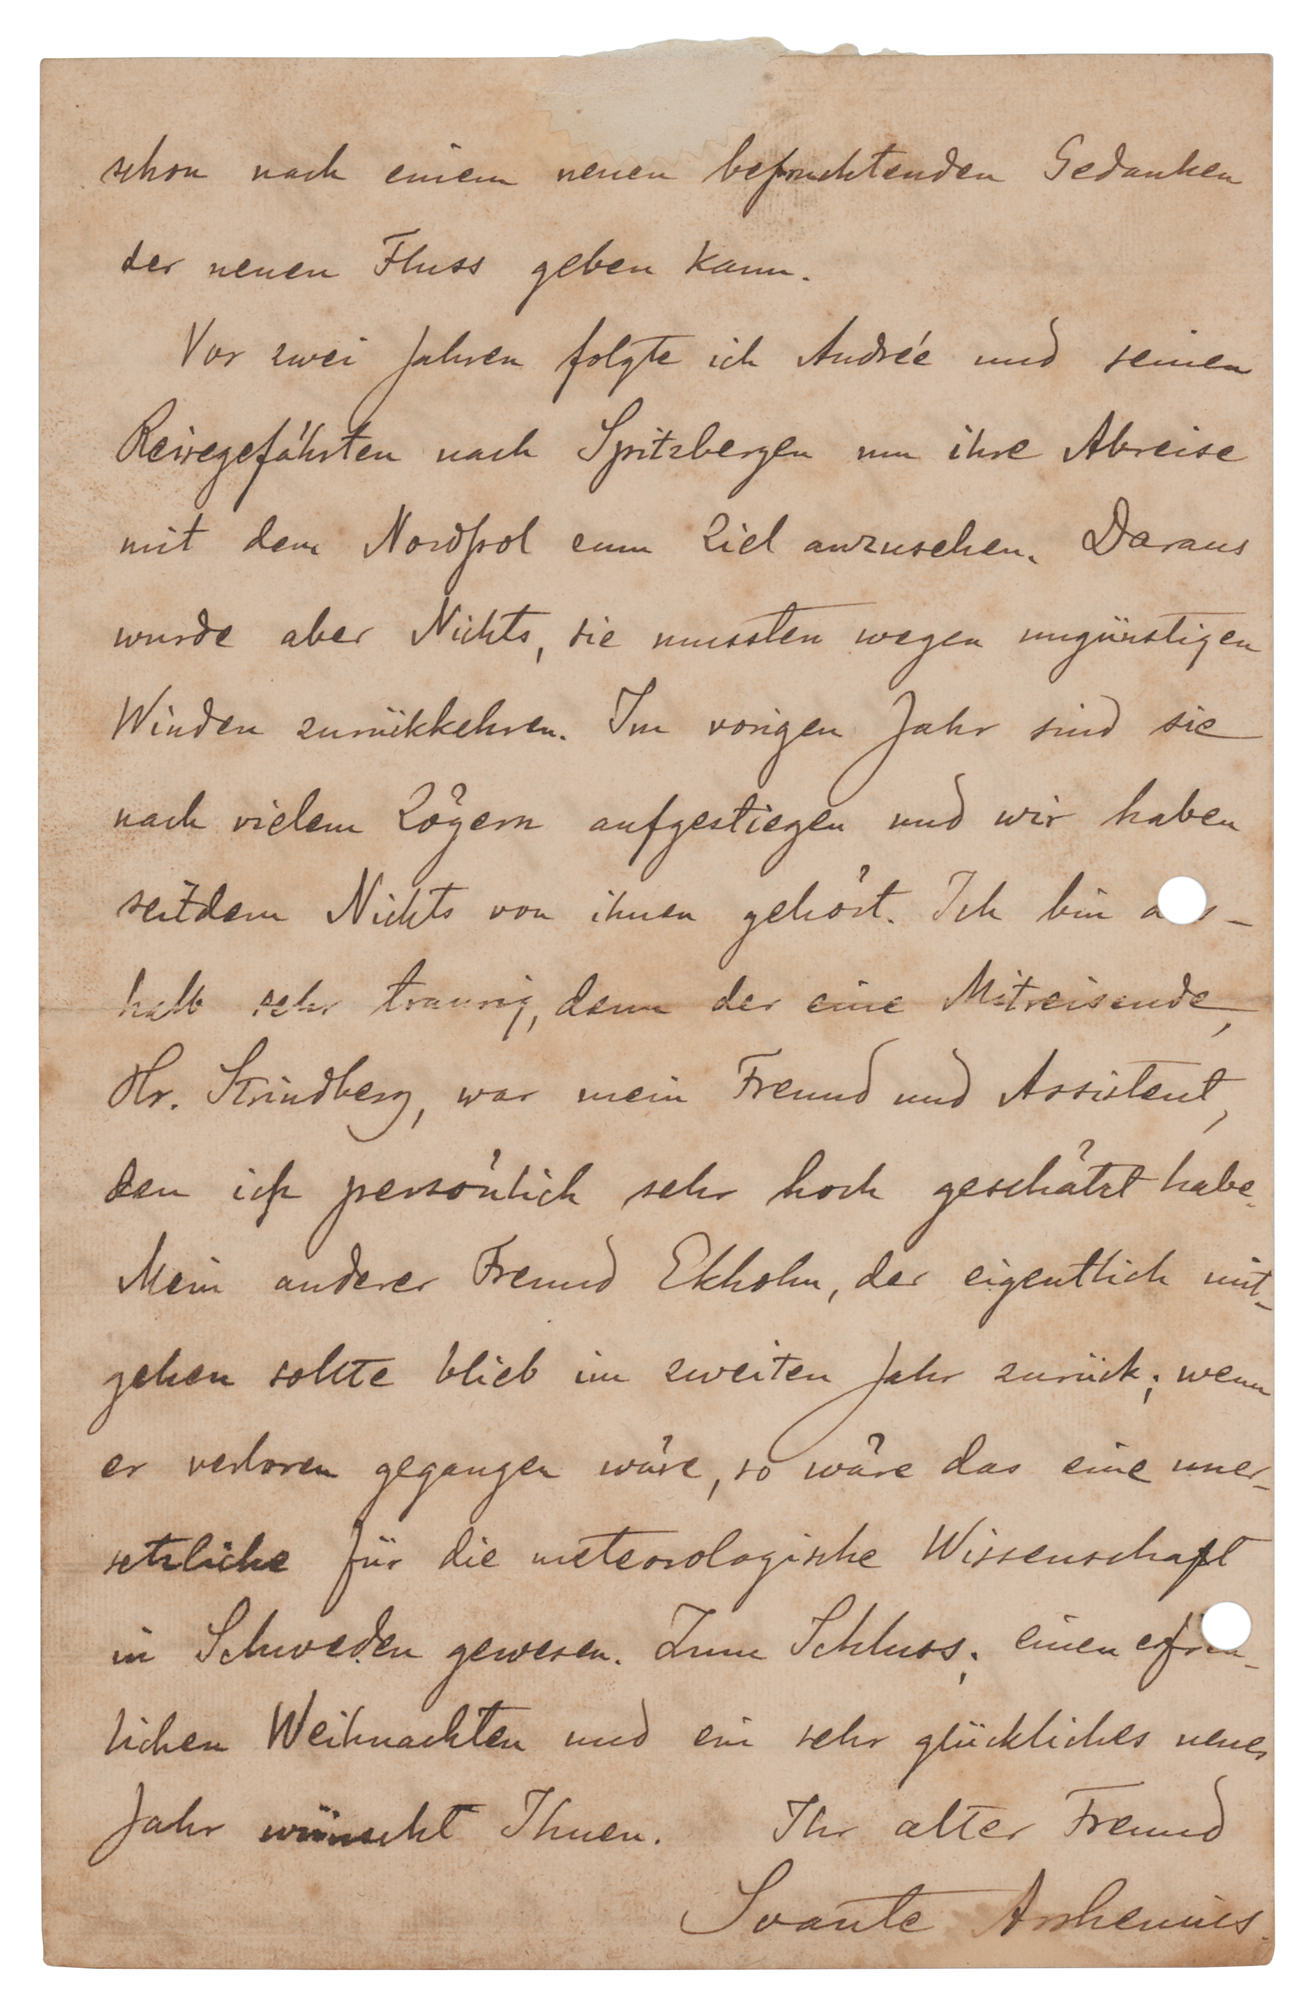 schon nach einem neuen befruchtenden Gedanken
der neuen Fluss geben kann.
Vor zwei Jahren folgte ich Andrée und seinen
Reisegefährten nach Spitzbergen um ihre Abreise
mit dem Nordpol zum Ziel anzusehen. Daraus
wurde aber Nichts, sie mussten wegen ungünstigen
Winden zurükkehren. Im vorigen Jahr sind sie
nach vielem Zögern aufgestiegen und wir haben
seitdem Nichts von ihnen gehört. Ich bin
halb sehr traurig, denn der eine Mitreisende,
Hr. Strindberg, war mein Freund und Assistent,
den ich persönlich sehr hoch geschätzt habe.
Mein anderer Freund Ekholm, der eigentlich mit-
gehen sollte blieb im zweiten Jahr zurück; wenn
er verloren gegangen wäre, so wäre das eine uner-
setzliche für die meteorologische Wissenschaft
in Schweden gewesen. Zum Schluss; einen erfreu-
lichen Weihnachten und ein sehr glückliches neues
Jahr wünscht Ihnen. Ihr alter Freund
Svante Arrhenius.